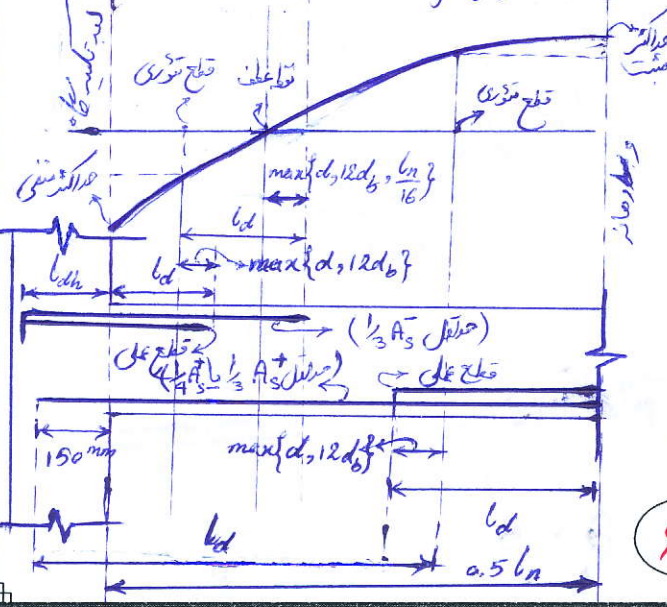 لبه تکیه گاه
حداکثر مثبت
قطع تئوری
نقطه عطف
قطع تئوری
وسط دهانه
حداکثر منفی
max{d,12d_b,l_n/16}
l_d
l_dh
l_d
max{d,12d_b}
(حداقل 1/3 A_s^-)
قطع عملی
(حداقل 1/3 A_s^+ یا 1/4 A_s^+)
قطع عملی
150 mm
max{d,12d_b}
l_d
l_d
0.5 l_n